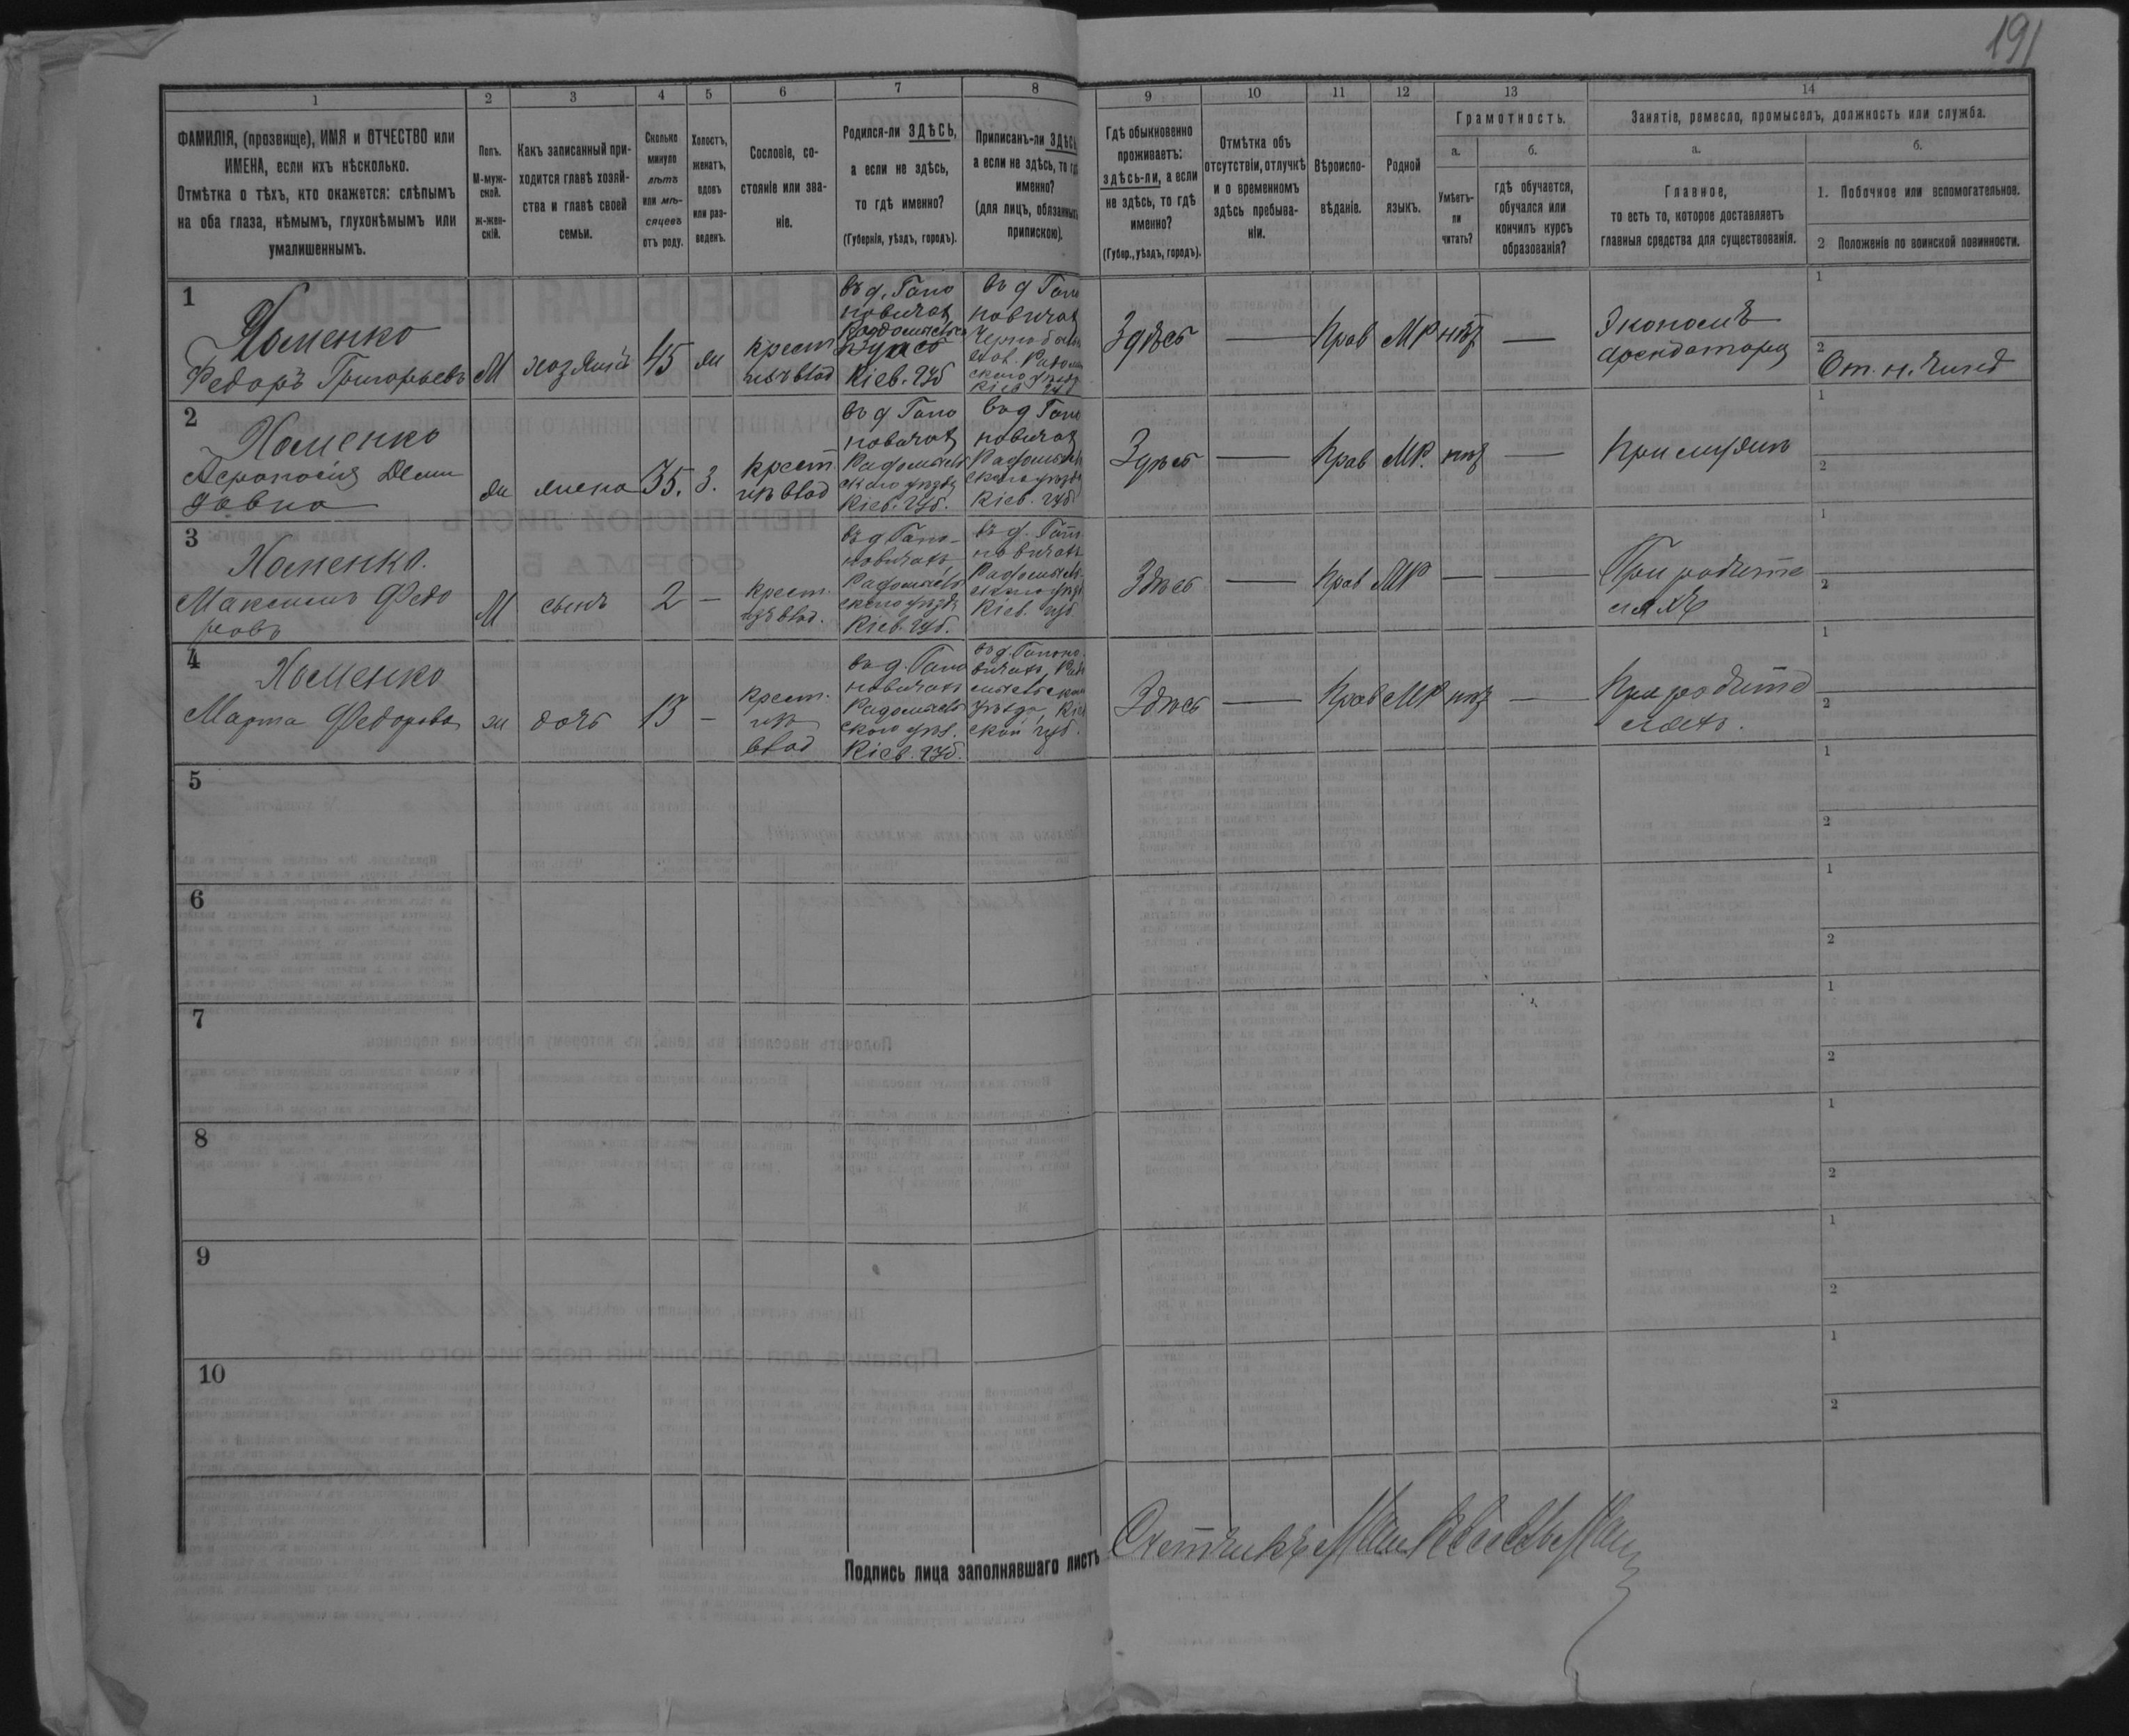 191
1
2
3
4
5
6
7
8
9
10
11
12
13
14
ФАМИЛІЯ, (прозвище), ИМЯ и ОТЧЕСТВО или
ИМЕНА, если ихъ нѣсколько.
Отмѣтка о тѣхъ, кто окажется: слѣпымъ
на оба глаза, нѣмымъ, глухонѣмымъ или
умалишеннымъ.
Полъ.
М-муж-
ской.
ж-жен-
скій.
Какъ записанный при-
ходится главѣ хозяй-
ства и главѣ своей
семьи.
Сколько
минуло
лѣтъ
или мѣ-
сяцевъ
отъ роду.
Холостъ,
женатъ,
вдовъ
или раз-
веденъ.
Сословіе, со-
стояніе или зва-
ніе.
Родился-ли ЗДѢСЬ,
а если не здѣсь,
то гдѣ именно?
(Губернія, уѣздъ, городъ).
Приписанъ-ли ЗДѢСЬ
а если не здѣсь, то гдѣ
именно?
(для лицъ, обязанныхъ
припискою).
Гдѣ обыкновенно
проживаетъ:
здѣсь-ли, а если
не здѣсь, то гдѣ
именно?
(Губер., уѣздъ, городъ).
Отмѣтка объ
отсутствіи, отлучкѣ
и о временномъ
здѣсь пребыва-
ніи.
Вѣроиспо-
вѣданіе.
Родной
языкъ.
Грамотность.
а.
Умѣетъ-
ли
читать?
б.
гдѣ обучается,
обучался или
кончилъ курсъ
образованія?
Занятіе, ремесло, промыселъ, должность или служба.
а.
Главное,
то есть то, которое доставляетъ
главныя средства для существованія.
б.
1. Побочное или вспомогательное.
2 Положеніе по воинской повинности.
1
Хоменко
Федоръ Григорьевъ
М
хозяинъ
45
ж
крест
изъ влад
въ д. Гапо
новичах
Кіев. губ
въ д Гапо
новичах
Здѣсь
Прав
МР
нѣт
Экономъ
арендаторъ
1
2
От. н. чинъ
2
Хоменко
Агрипина Деми
довна
ж
жена
35.
З.
крест
изъ влад
въ д Гапо
новичах
Радомысль
скаго уѣзда
Кіев. губ.
въ д Гапо
новичах
Радомысль
скаго уѣзда
Кіев. губ
Здѣсь
Прав
МР.
нѣт
При мужѣ
1
2
3
Хоменко.
Максимъ Федо
ровъ
М
сынъ
2
—
крест.
изъ влад.
въ д Гапо-
новичахъ
Радомысль
скаго уѣзд
Кіев. губ.
въ д. Гапо
новичахъ
Радомысль
скаго уѣзд
Кіев. губ
Здѣсь
Прав
МР
—
При родите
ляхъ
1
2
4
Хоменко
Марта Федорова
ж
дочь
13
—
крест.
изъ
влад
въ д. Гапо
новичахъ
Радомысль
скаго уѣз.
Кіев. губ.
въ д. Гапоно
вичахъ, Радо
мысльскаго
уѣзда, Кіев
ской губ.
Здѣсь
Прав
МР
нѣт
При родите
ляхъ.
1
2
5
1
2
6
1
2
7
1
2
8
1
2
9
1
2
10
1
2
Подпись лица заполнявшаго листъ
Счетчикъ